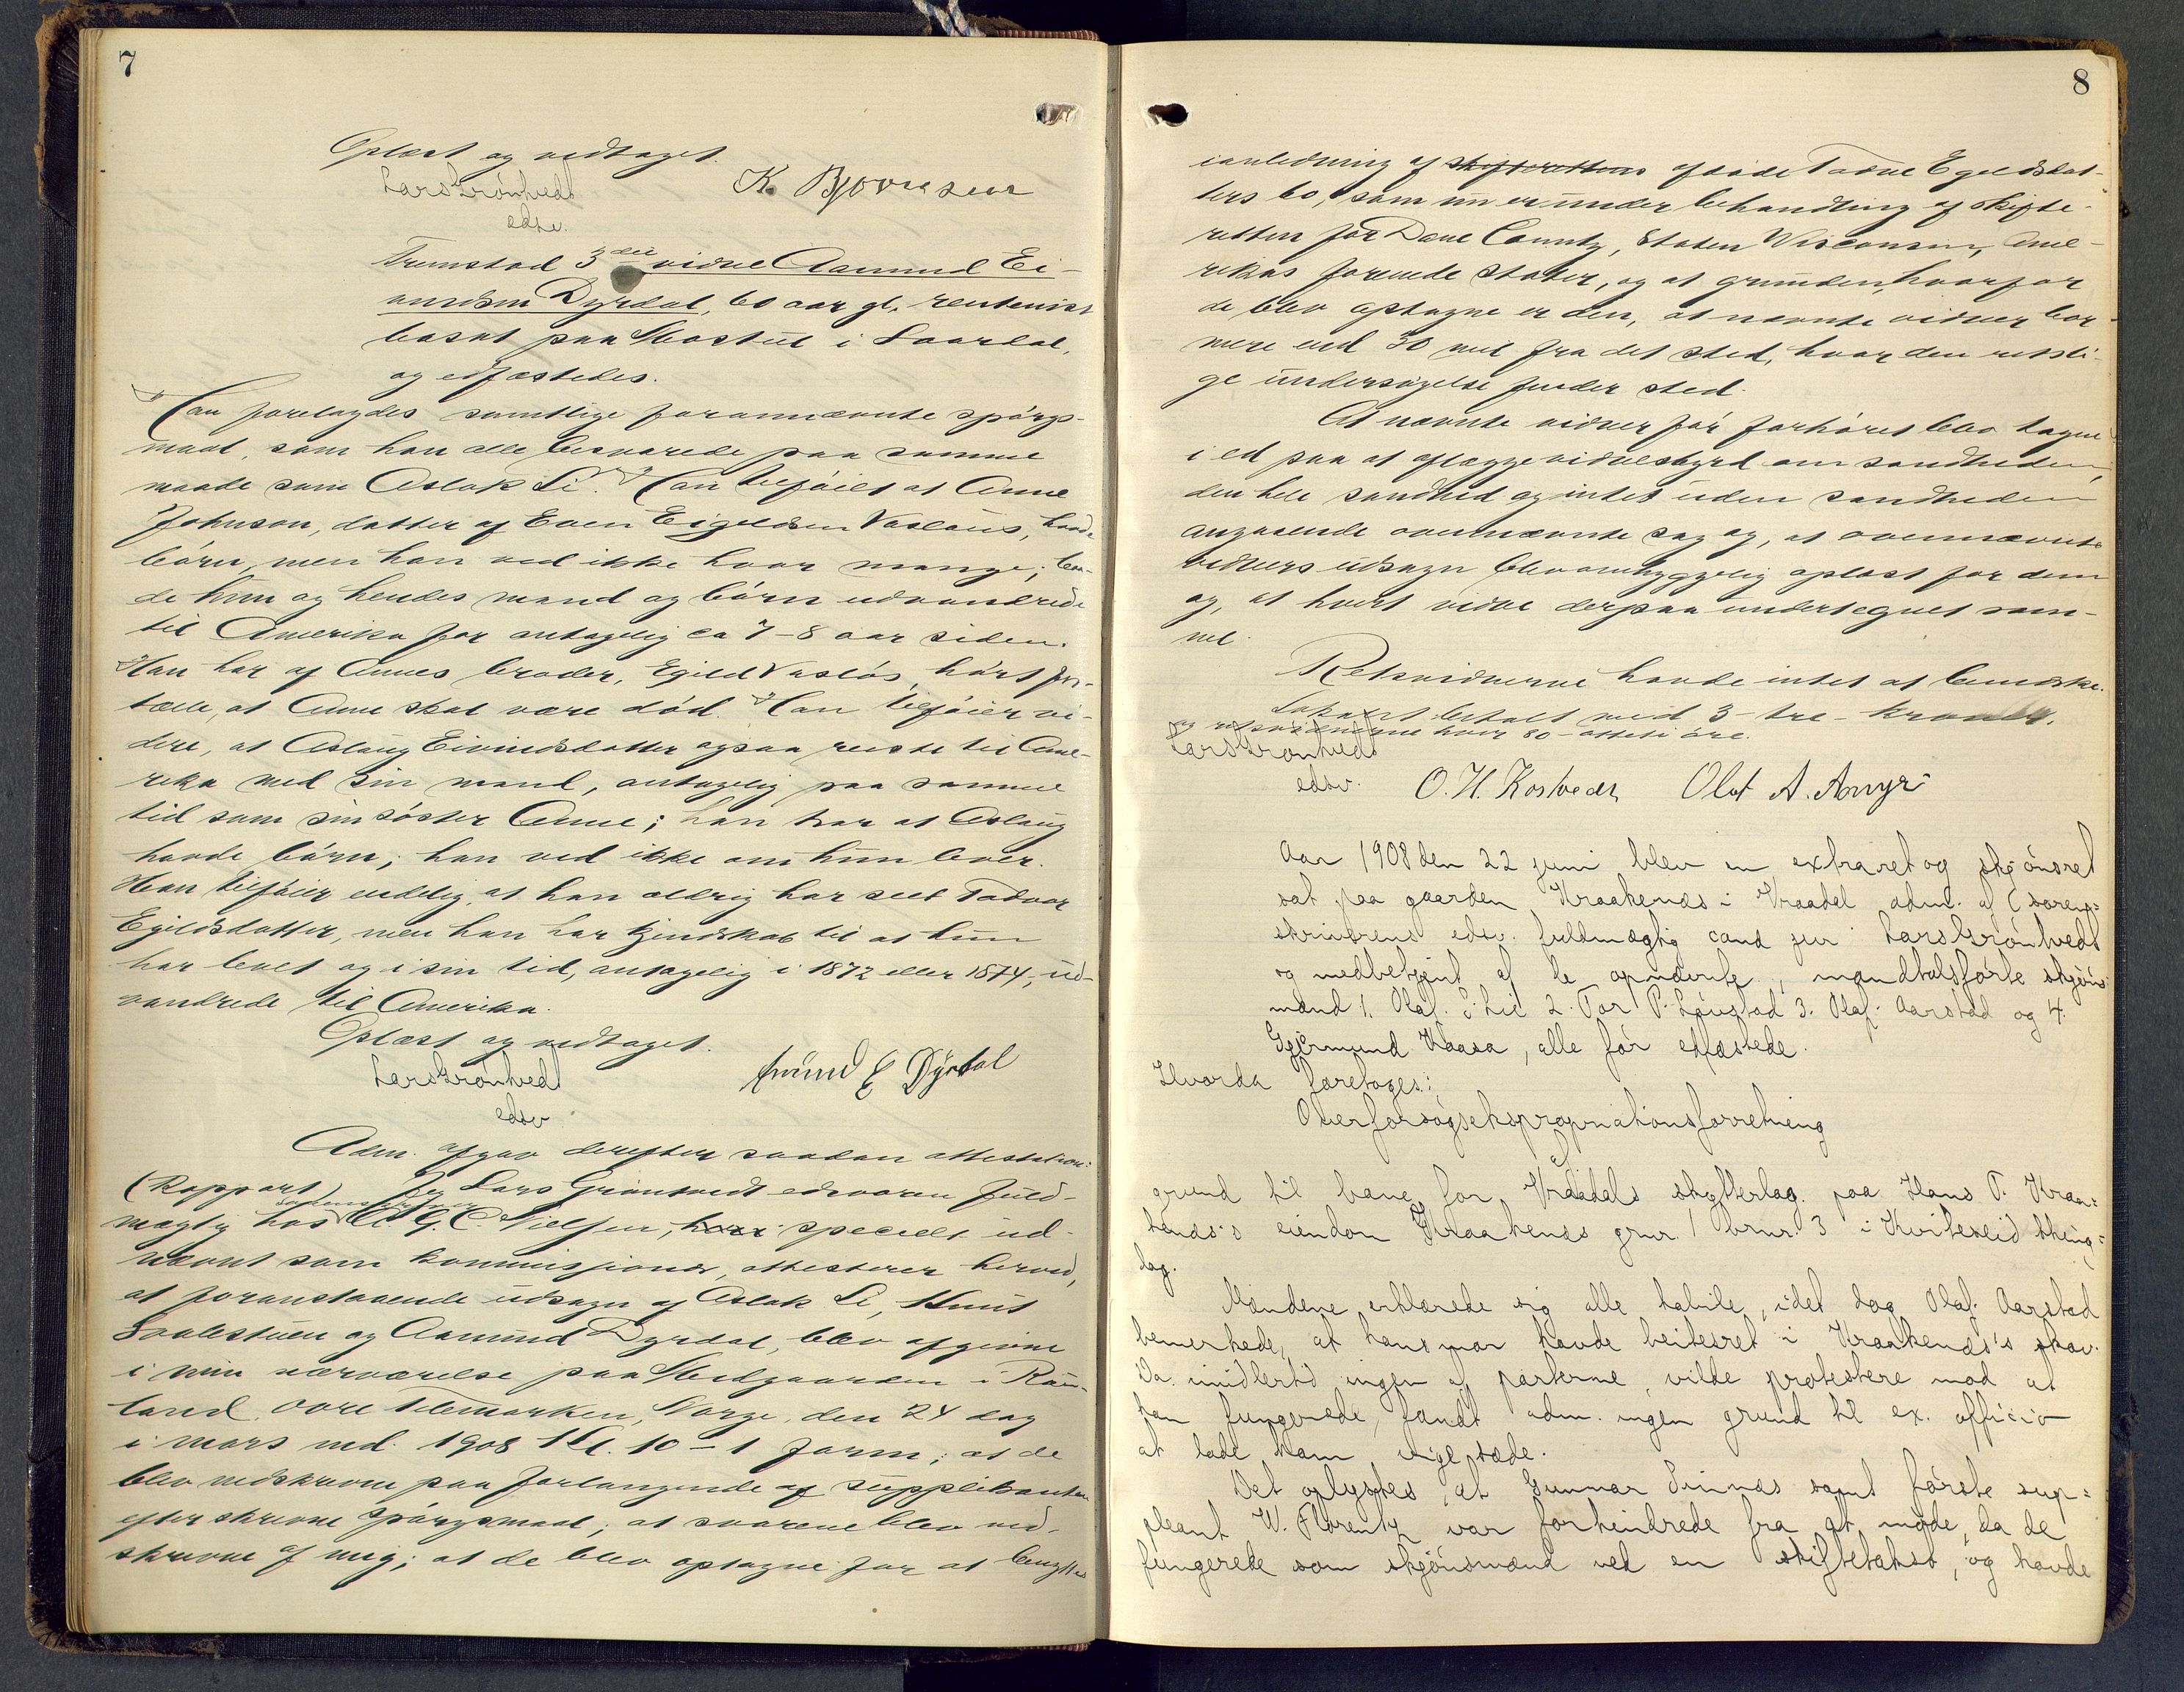 7
Oplæst og vedtaget.
Lars Grönhvedt K. Bjørnsen
edsv.
Fremstod 3die vidne Aamund Ei-
vindsen Dyrdal, 60 aar gl. rentenist
bosat paa Mostul i Laardal,
og edfæstedes.
Han forelagdes samtlige forannævnte spörgs-
maal, som han alle besvarede paa samme
maade som Aslak Li. Han tilföiet at Anne
Johnson, datter af Even Eigeldsen Vaslaus, havde
börn, men han ved ikke hvor mange; baa-
de hun og hendes mand og börn udvandrede
til Amerika for antagelig ca 7-8 aar siden.
Han har af Annes broder, Egild Vaslös, hört for-
tælle, at Anne skal være död. Han tilföier vi-
dere, at Aslaug Eivindsdatter ogsaa reiste til Ame-
rika med sin mand, antagelig paa samme
tid som sin söster Anne; han tror at Aslaug
havde börn; han ved ikke om hun lever.
Han tilföier endelig, at han aldrig har seet Tadvor
Egildsdatter, men han har kjendskab til at hun
har levet og i sin tid, antagelig i 1872 eller 1874, ud-
vandrede til Amerika.
Oplæst og vedtaget.
Lars Grönhvedt Amund E Dyrdal
edsv
Adm. afgav derefter saadan attestation:
(Rapport) Jeg Lars Grönhvedt edsvoren fuld-
mægtig hos C. G. C. Nielsen, specielt ud-
nævnt som kommissionær, attesterer herved,
at foranstaaende udsagn af Aslak Li, Knut
Saalestuen og Aamund Dyrdal, blev afgivne
i min nærværelse paa Midgaarden i Rau-
land, Övre Telemarken, Norge, den 24 dag
i mars md. 1908 Kl. 10-1 form; at de
blev nedskrevne paa forlangende af supplikanten
efter skrevne spörgsmaal; at svarene blev ned-
skrevne af mig; at de blev optagne for at benyttes
8
ianledning af skifterettens afdöde Tadne Egeldsdat-
ters bo, som nu er under behandling af skifte-
retten for Dane County, Staten Wisconsin, Ame-
rikas forenede stater, og at grunden, hvorfor
de blev optagne er den, at nævnte vidner bor
mere end 30 mil fra det sted, hvor den retsli-
ge undersögelse finder sted.
At nævnte vidner för forhöret blev tagne
i ed paa at aflægge vidnesbyrd om sandheden,
den hele sandhed og intet uden sandheden
angaaende ovennævnte sag og, at ovennævnte
vidners udsagn blev omhyggelig oplæst for dem
og, at hvert vidne derpaa undertegnet sam-
me.
Retsvidnerne havde intet at bemærke.
betalt med 3 - tre - kroner.
og retsvidnerne hver 80 - otteti öre.
Lars Grönhvedt
edsv. O. H. Kostveit Olaf A. Amyri
Aar 1908 den 22 juni blev en extraret og skjönsret
sat paa gaarden Kraakenæs i Vraadal adm. af (soren=
skriverens edsv. fuldmægtig cand jur Lars Grönhvedt
og medbetjent af de opnævnte, mandtalsförte skjöns=
mænd 1. Olaf S. Lie 2. Tor P. Löustad 3. Olaf Aarstad og 4.
Gjermund Kaasa, alle för edfæstede.
Hvorda foretoges:
Overforsögsekspropriationsforretning
af
grund til bane for Vraadals skytterlag paa Hans T. Kraa=
kenæs's eiendom Kraakenæs grnr. 1 brnr. 3 i Kviteseid thing=
lag.
Mændene erklærede sig alle habile, idet dog Olaf Aarstad
bemerkede, at hans mor havde beitesret i Kraakenæs's skov.
Da imidlertid ingen af parterne vilde protestere mod at
han fungerede, fandt adm. ingen grund til ex. officio
at lade ham vige sæde.
Det oplystes, at Gunnar Sinnes samt förste sup=
pleant W. Florentz var forhindrede fra at möde, da de
fungerede som skjönsmænd ved en skiftetakst, og havde